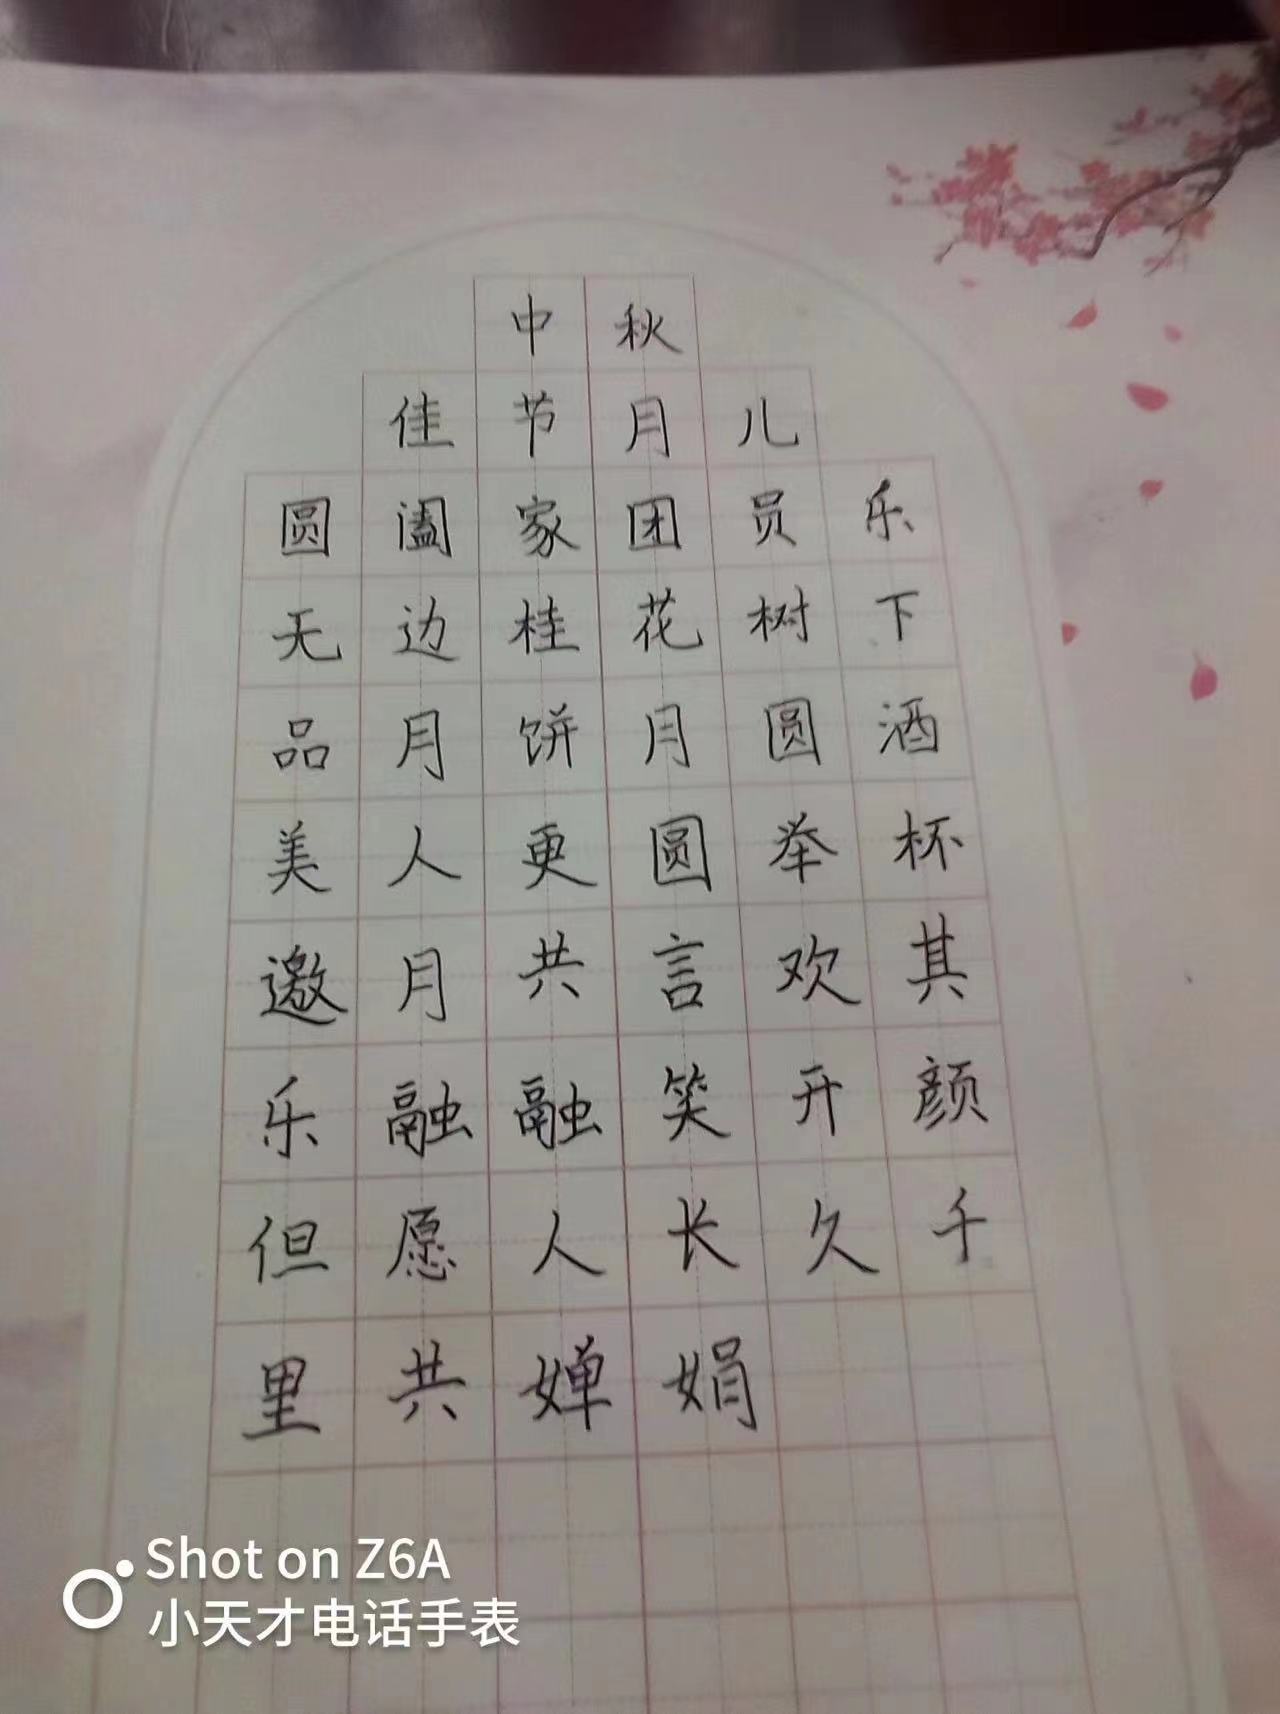 中秋
佳节月儿
圆阖家团员乐
无边桂花树下
品月饼月圆酒
美人更圆举杯
邀月共言欢其
乐融融笑开颜
但愿人长久千
里共婵娟
Shot on Z6A
小天才电话手表